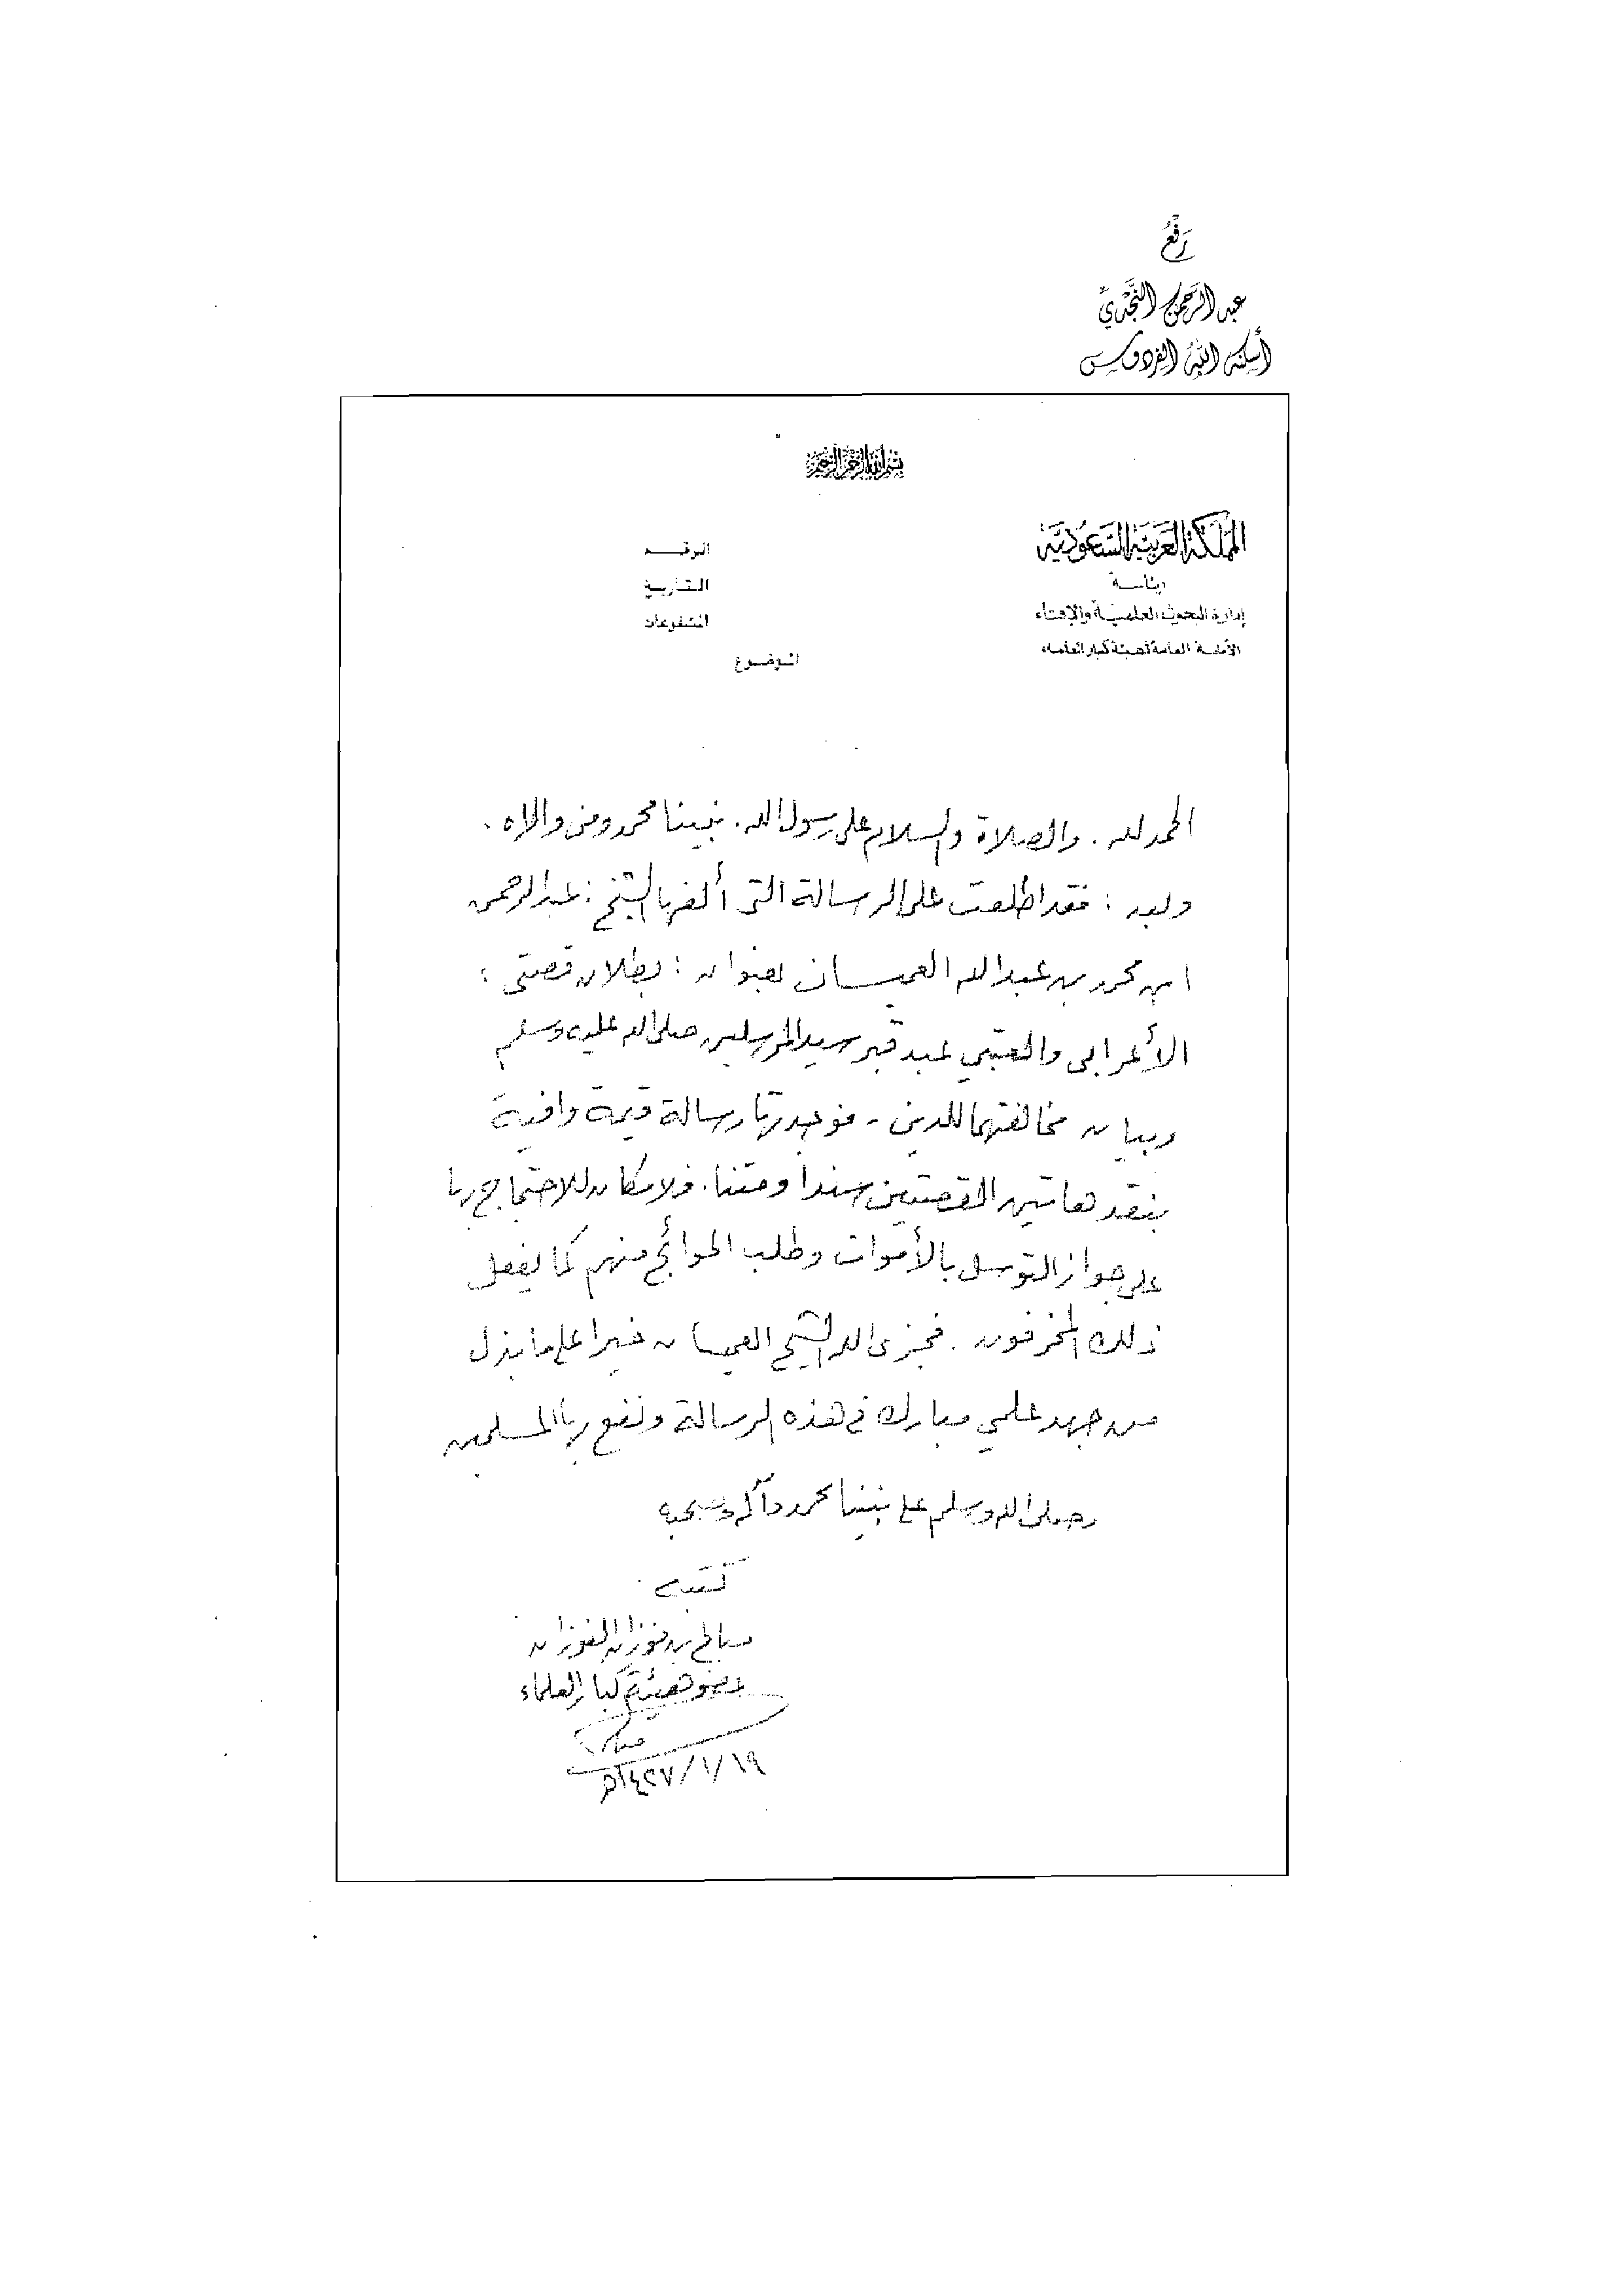 رَفْعُ
عبد الرحمن النجدي
أسكنه الله الفردوس
بسم الله الرحمن الرحيم
المملكة العربية السعودية
رئاسة
إدارة البحوث العلمية والإفتاء
الأمانة العامة لهيئة كبار العلماء
الرقم
التاريخ
المشفوعات
الموضوع
الحمد لله. والصلاة والسلام على رسول الله. نبينا محمد ومن والاه.
وبعد: فقد اطلعت على الرسالة التي ألفها الشيخ: عبد الرحمن
ابن محمد بن عبد الله العميسان بعنوان: بطلان قصتي:
الأعرابي والعتبي عند قبر سيد المرسلين صلى الله عليه وسلم
وبيان مخالفتهما للدين - فوجدتها رسالة قيمة وافية
بنقد هاتين القصتين سندا ومتنا. فلا مكان للاحتجاج بها
على جواز التوسل بالأموات وطلب الحوائج منهم كما يفعل
ذلك المخرفون. فجزى الله الشيخ العميسان خيرا على ما بذل
من جهد علمي مبارك في هذه الرسالة ونفع بها المسلمين
وصلى الله وسلم على نبينا محمد وآله وصحبه
كتبه
صالح بن فوزان الفوزان
عضو هيئة كبار العلماء
١٩/١/١٤٢٧هـ